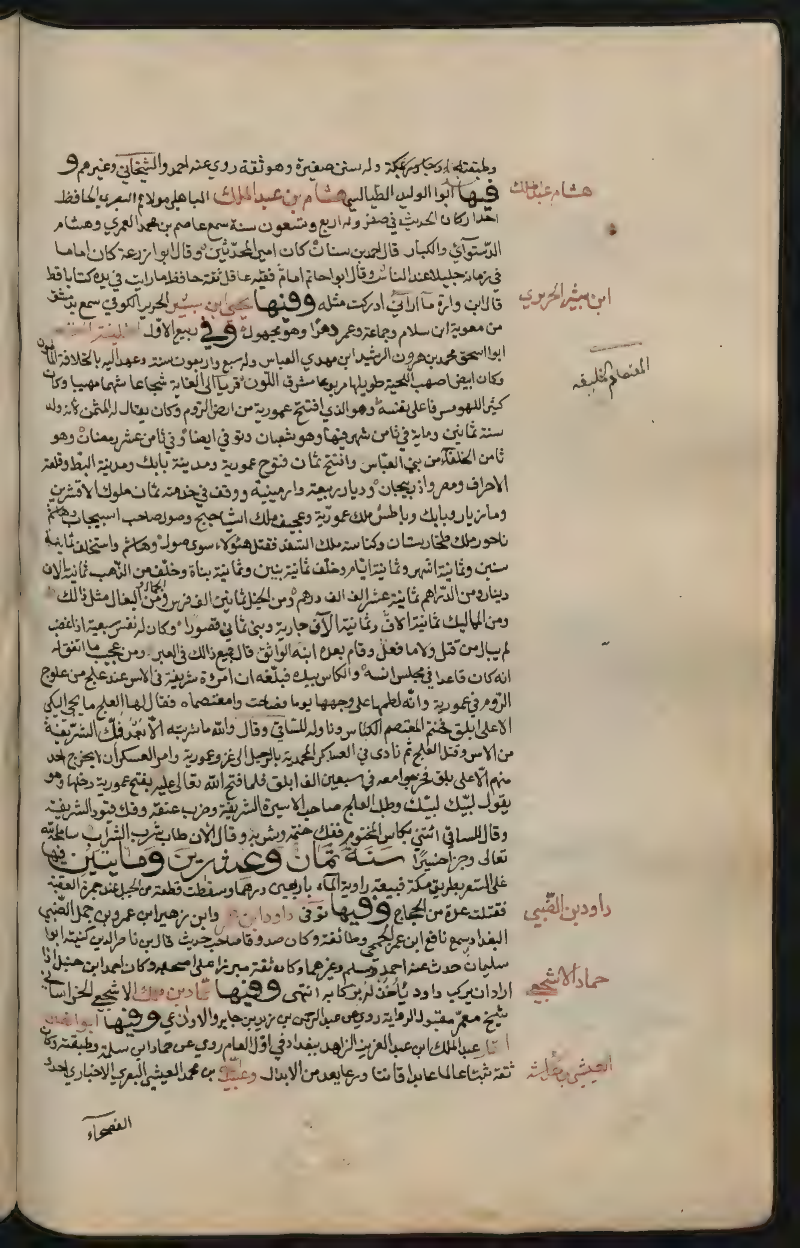 وطبقته وله سنن صغيرة وهو ثقة روي عنه احمد والشيخان وغيرهم و
هشام عبد الملك
فيها ابوا الوليد الطيالسي هشام بن عبد الملك الباهلي مولاهم البصري الحافظ
احد اركان الحديث في صفر وله اربع وتسعون سنة سمع عاصم بن محمد العمري وهشام
الدستوائي والكبار قال احمد بن سنان كان امير المحدثين وقال ابوا زرعة كان اماما
في زمانه جليلا عند الناس وقال ابوا حاتم امام فقيه عاقل ثقة حافظ ما رايت في يده كتابا قط
ابن بشير الحريري
قال ابن وارة ما اراني ادركت مثله وفيها يحيى ابن بشير الحريري الكوفي سمع بدمشق
من معوية ابن سلام وجماعة وعمر دهرا وهو مجهول وفي ربيع الاول
المعتصم الخليفه
ابوا اسحق محمد بن هرون الرشيد ابن مهدي العباسي وله سبع واربعون سنة وعهد اليه بالخلافة المأمون
وكان ابيض اصهب اللحية طويلها مربوعا مشرق اللون قويا الى الغاية شجاعا شهما مهيبا وكان
كثير اللهو مسرفا على نفسه وهو الذي افتتح عمورية من ارض الروم وكان يقال له المثمن لانه ولد
سنة ثمانين وماية في ثامن شهر فيها وهو شعبان وتوفي ايضا في ثامن عشر رمضان وهو
ثامن الخلفاء من بني العباس وافتتح ثمان فتوح عمورية ومدينة بابك ومدينة البط وقلعة
الاحراف ومصر واذربيجان وديار ربيعة وارمينية ووقف في خدمته ثمان ملوك الافشين
ومازيار وبابك وباطس ملك عمورية وعجيف ملك اشياحيج وصول صاحب اسبيجاب وهاشم
ناحور ملك طخارستان وكناسة ملك السغد فقتل هؤلاء سوى صول وهاشم واستخلف ثمانية
سنين وثمانية اشهر وثمانية ايام وخلف ثمانية بنين وثمانية بناة وخلف من الذهب ثمانية الاف
دينار ومن الدراهم ثمانية عشر الف الف درهم ومن الخيل ثمانين الف فرس ومن الجمال والبغال مثل ذالك
ومن المماليك ثمانية الاف وثمانية الاف جارية وبنى ثماني قصورا وكان له نفس سبعية اذا غضب
لم يبال من قتل ولا ما فعل وقام بعده ابنه الواثق قال جميع ذالك في العبر ومن عجيب ما اتفق له
انه كان قاعدا في مجلس انسه والكاس بيده فبلغه ان امرءة شريفة في الاسر عند علج من علوج
الروم في عمورية وانه لطمها على وجهها يوما فصاحت وا معتصماه فقال لها العلج ما يجي اليكي
الا على ابلق فختم المعتصم الكاس وناوله للساقي وقال والله ما شربته الا بعد فك الشريفة
من الاسر وقتل العلج ثم نادى في العساكر المحمدية بالرحيل الى غزو عمورية وامر العسكر ان لا يخرج احد
منهم الا على ابلق فخرجوا معه في سبعين الف ابلق فلما فتح الله تعالى عليه بفتح عمورية دخلها وهو
يقول لبيك لبيك وطلب العلج صاحب الاسيرة الشريفة وضرب عنقه وفك قيود الشريفة
وقال للساقي ائتني بكاس المختوم ففك ختمه وشربه وقال الان طاب شرب الشراب سامحه الله
تعالى وجزاه خيرا سنة ثمان وعشرين ومايتين فيها
غلى السعر بطريق مكة فبيعة راوية الماء باربعين درهما وسقطت قطعة من الجبل عند جمرة العقبة
داود بن الضبي
فقتلت عدة من الحجاج وفيها توفي داود ابن عمر وابن زهير ابن عمرو بن جمل الضبي
البغدادي سمع نافع ابن عمر الجمحي وطائفة وكان صدوقا صاحب حديث قال بن ناصر الدين كنيته ابوا
سليمان حدث عنه احمد ومسلم وغيرهما وكان ثقة مبرزا على اصحابه وكان احمد ابن حنبل اذا
حماد الاشجعي
اراد ان يركب داود ياخذ له بركابه انتهى وفيها حماد بن مالك الاشجعي الحرستاني
شيخ معمر مقبول الرواية روي عن عبد الرحمن بن يزيد بن جابر والاوزاعي وفيها ابوا نصر
التمار عبد الملك ابن عبد العزيز الزاهد ببغداد في اول العام روي عن حماد ابن سلمة وطبقته وكان
العيشي بن عائشة
ثقة ثبتا عالما عابدا قانتا ورعا يعد من الابدال وعبيد الله بن محمد العيشي البصري الاخباري احد
الفصحاء